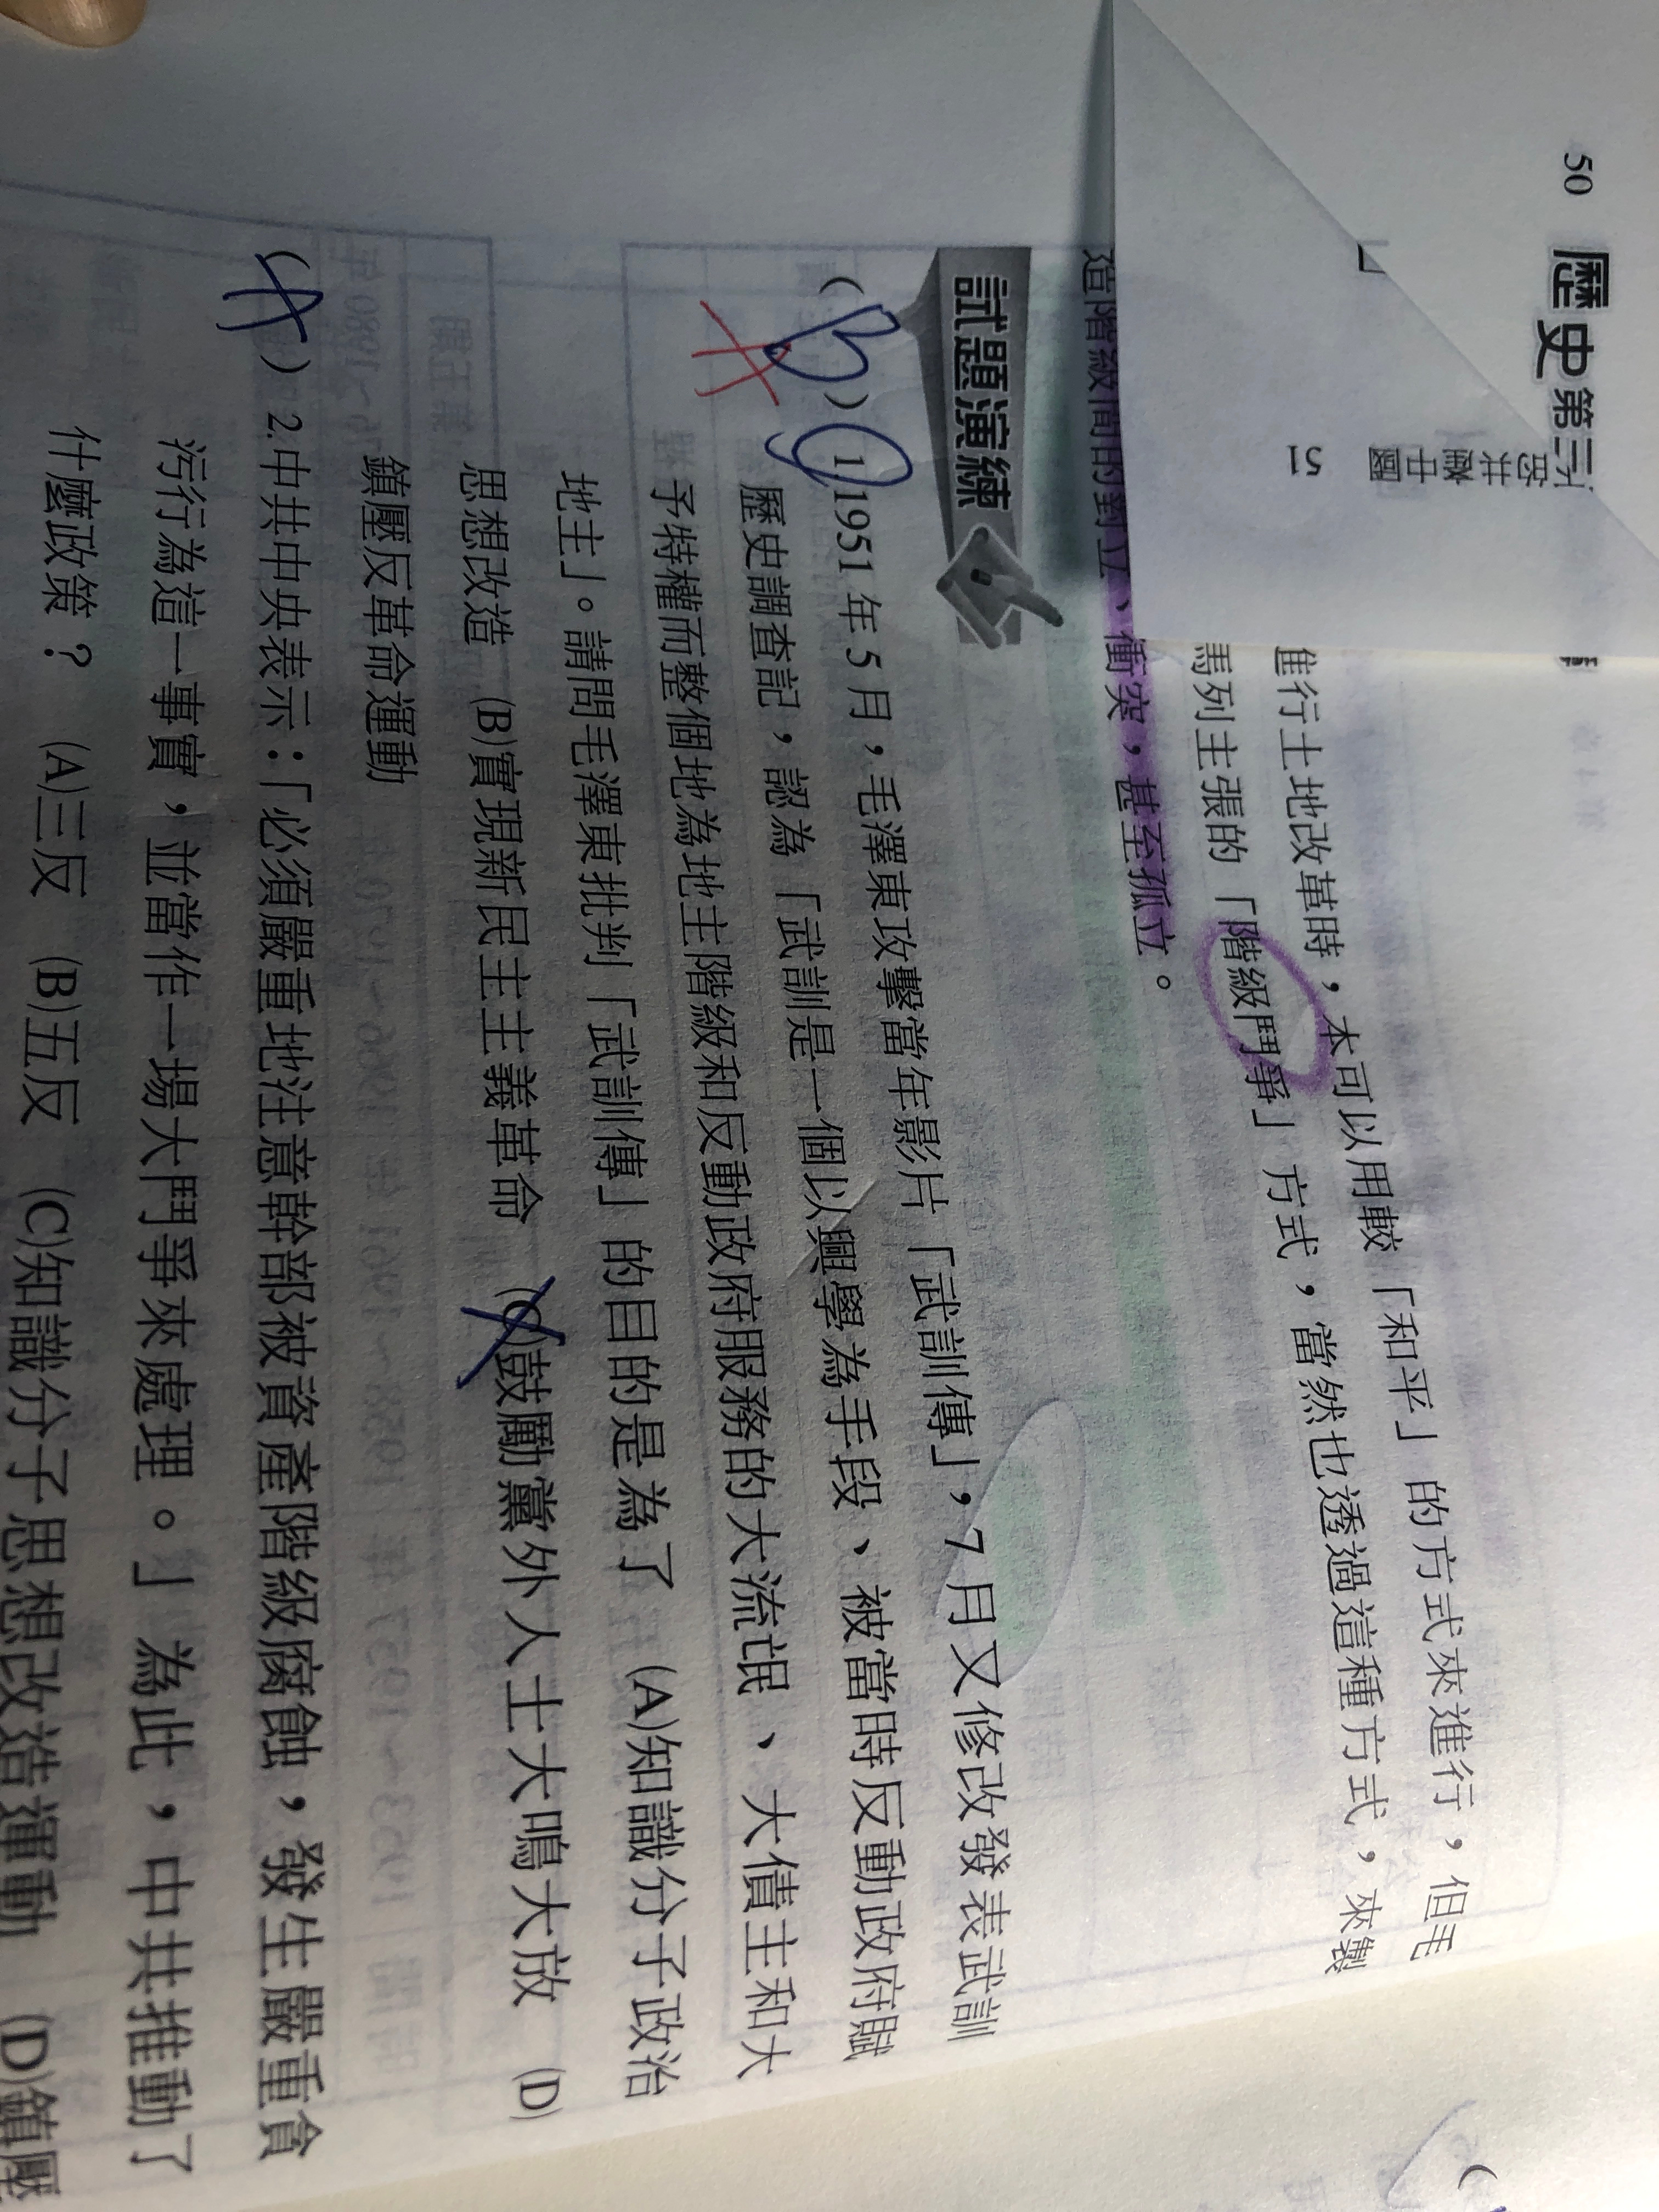 50 歷史第三
51
進行土地改革時，本可以用較「和平」的方式來進行，但毛
馬列主張的「階級鬥爭」方式，當然也透過這種方式，來製
造階級間的對立、衝突，甚至孤立。
試題演練
( B ) 1. 1951 年 5 月，毛澤東攻擊當年影片「武訓傳」，7 月又修改發表武訓
歷史調查記，認為「武訓是一個以興學為手段、被當時反動政府賦
予特權而整個地為地主階級和反動政府服務的大流氓、大債主和大
地主」。請問毛澤東批判「武訓傳」的目的是為了 (A)知識分子政治
思想改造 (B)實現新民主主義革命 (C)鼓勵黨外人士大鳴大放 (D)
鎮壓反革命運動
( A ) 2.中共中央表示：「必須嚴重地注意幹部被資產階級腐蝕，發生嚴重貪
污行為這一事實，並當作一場大鬥爭來處理。」為此，中共推動了
什麼政策？ (A)三反 (B)五反 (C)知識分子思想改造運動 (D)鎮壓